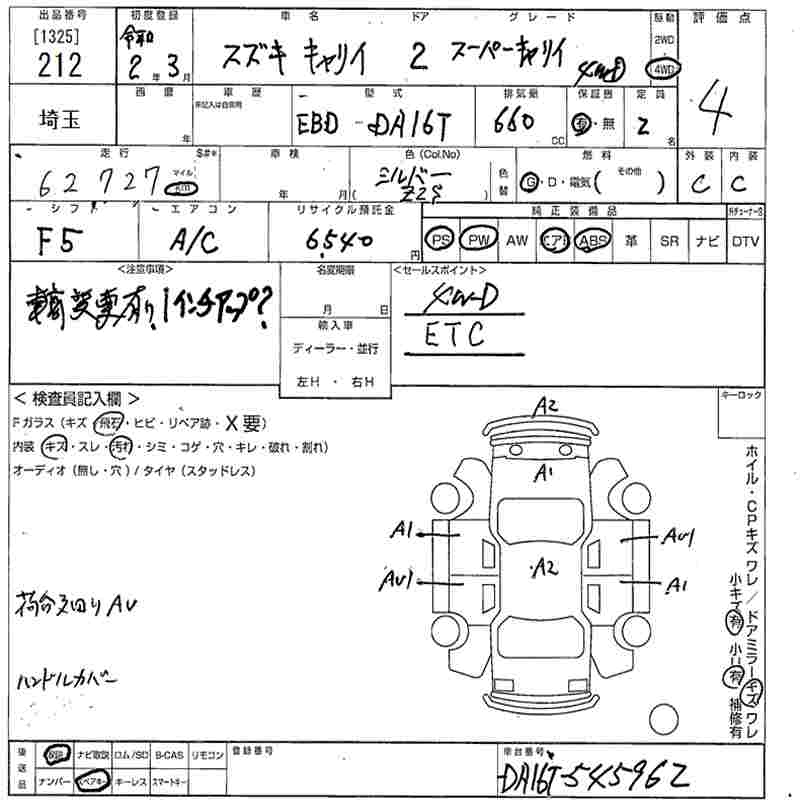 出品番号 初度登録 車名 ドア グレード 駆動 評価点
[1325] 令和 2WD
212 2年3月 スズキ キャリイ 2 スーパーキャリイ 4WD 4WD
4
西暦 車歴 型式 排気量 保証書 定員
未記入は自家用
埼玉 年 EBD-DA16T 660 CC 有・無 2 名
走行 S#* 車検 色(Col.No) 燃料 外装 内装
62727 マイル km 年 月 シルバー Z2S ( ) 色替 G・D・電気( その他 ) C C
シフト エアコン リサイクル預託金 純正装備品 RチューナーS
F5 A/C 6,540 円 PS PW AW エアB ABS 革 SR ナビ DTV
<注意事項> 名変期限 <セールスポイント>
車高変更有り、1インチアップ? 月 日 4W-D
輸入車 ETC
ディーラー・並行
左H ・ 右H
< 検査員記入欄 > キーロック
Fガラス(キズ・飛石・ヒビ・リペア跡・X要)
内装(キズ・スレ・汚れ・シミ・コゲ・穴・キレ・破れ・割れ)
オーディオ(無し・穴)/タイヤ(スタッドレス)
A2
A1
A1 AU1
A2
AU1 A1
荷台廻りAU
ハンドルカバー
ホイル・CPキズ ワレ / ドアミラーキズ ワレ
小キズ有 小U有 補修有
後送品 取説 ナビ取説 ロム/SD B-CAS リモコン 登録番号 車台番号
ナンバー スペアキー キーレス スマートキー DA16T-545962